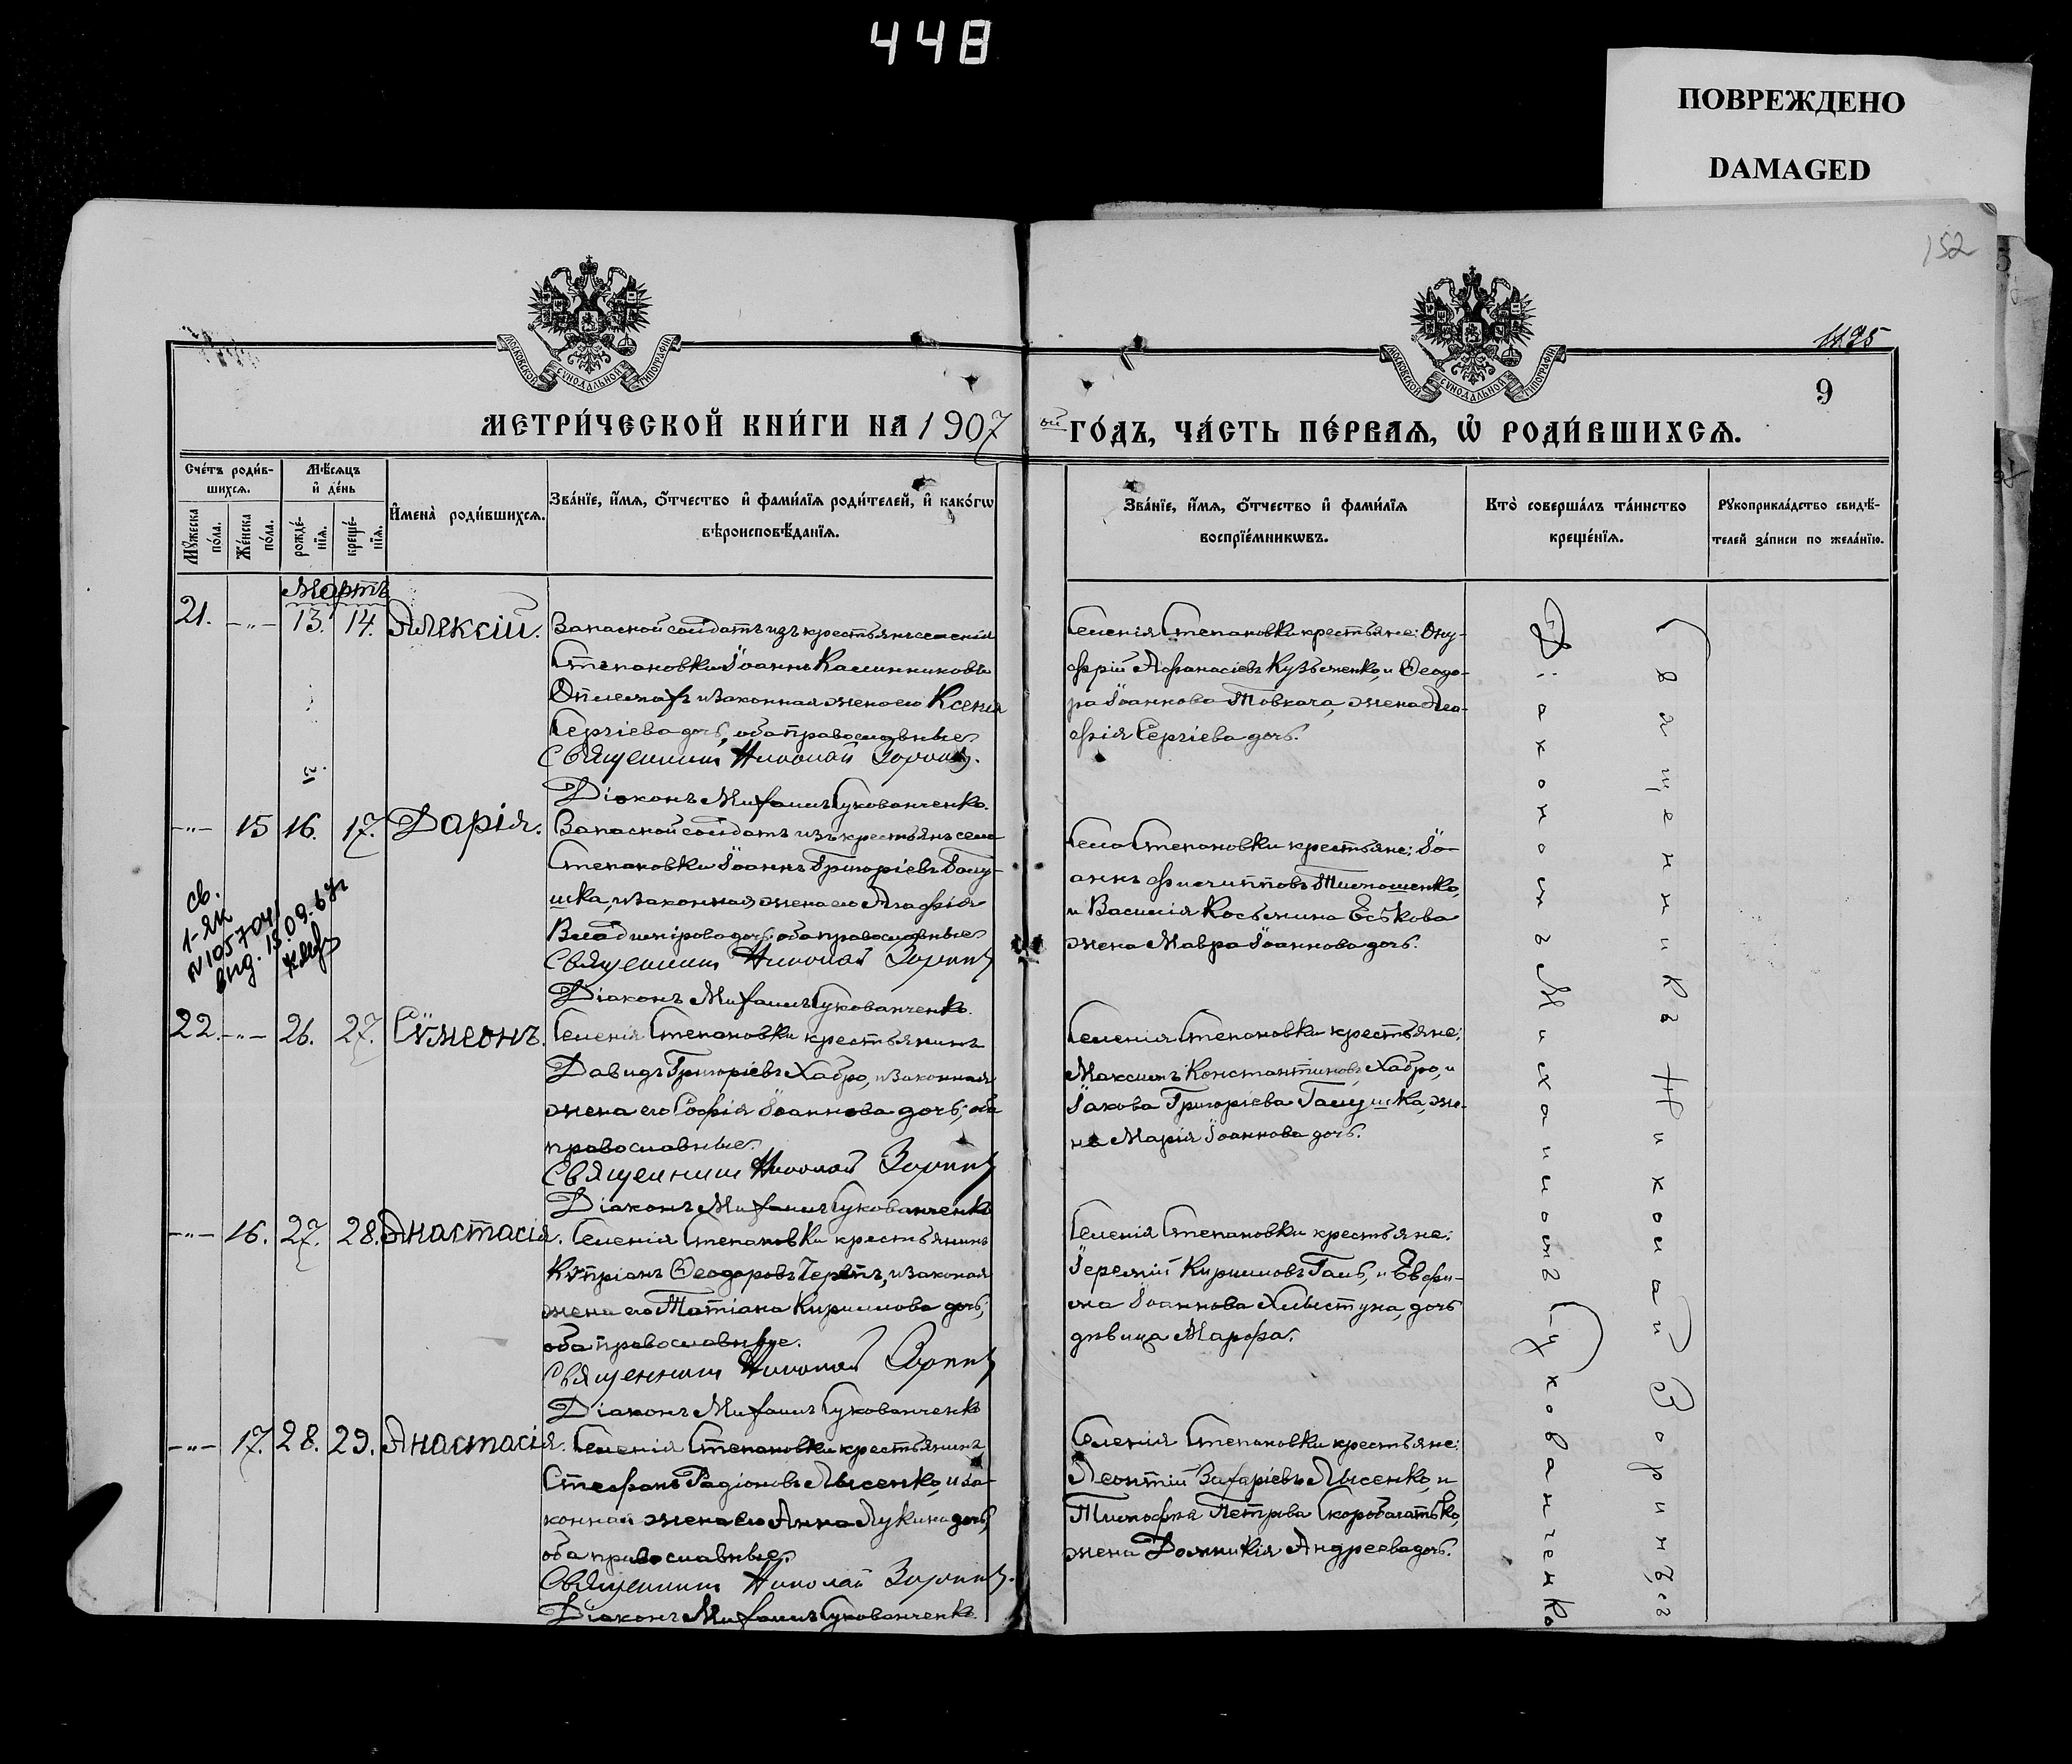 448
ПОВРЕЖДЕНО
DAMAGED
152
1195
9
МОСКОВСКОЙ СѴНОДАЛЬНОЙ ТИПОГРАФІИ
МОСКОВСКОЙ СѴНОДАЛЬНОЙ ТИПОГРАФІИ
МЕТРИ́ЧЕСКОЙ КНИ́ГИ НА 1907
ой ГО́ДЪ, ЧА́СТЬ ПЕ́РВАЯ, Ѡ҆ РОДИ́ВШИХСЯ.
Сче́тъ роди́в-
шихся.
Мꙋ́жеска по́ла.
Же́нска по́ла.
Мѣ́сяцъ
и҆ де́нь
рожде́-
нїя.
креще́-
нїя.
И҆мена̀ роди́вшихся.
Зва́нїе, и҆́мя, ѻ҆́тчество и҆ фами́лїя роди́телей, и҆ како́гѡ
вѣроисповѣ́данїя.
Зва́нїе, и҆́мя, ѻ҆́тчество и҆ фами́лїя
воспрїе́мникѡвъ.
Кто̀ соверша́лъ та́инство
креще́нїя.
Рꙋкоприкла́дство свидѣ́-
телей за́писи по жела́нїю.
Мартъ
21. -"- 13. 14. Алексій.
Запасной солдатъ изъ крестьянъ селенія
Степановки Іоаннъ Калинниковъ
и законная жена его Ксенія
Сергіева дочь, оба православные
Священникъ Николай Зоринъ.
Діаконъ Михаилъ Сукованченко.
Селенія Степановки крестьяне: Ону-
фрій Аѳанасіевъ Кузьменко, и Ѳеодо-
ра Іоаннова Товкача, жена Ага-
фія Сергіева дочь.
-"- 15 16. 17. Дарія.
Запасной солдатъ изъ крестьянъ села
Степановки Іоаннъ Григоріевъ Галу-
шка, и законная жена его Агафія
Владимірова дочь, оба православные
Священникъ Николай Зоринъ
Діаконъ Михаилъ Сукованченко.
Села Степановки крестьяне: Іо-
аннъ Филипповъ Тимошенко,
и Василія Косьмина Еськова
жена Мавра Іоаннова дочь.
св.
1-ЯК
N 105704
вид. 15.09.67г
22. -"- 26. 27. Сѵмеонъ.
Селенія Степановки крестьянинъ
Давидъ Григоріевъ Хабро, и законная
жена его Софія Іоаннова дочь, оба
православные.
Священникъ Николай Зоринъ
Діаконъ Михаилъ Сукованченко
Селенія Степановки крестьяне:
Максимъ Константиновъ Хабро, и
Іакова Григоріева Галушка, же-
на Марія Іоаннова дочь.
-"- 16. 27. 28. Анастасія.
Селенія Степановки крестьянинъ
Кѵпріанъ Ѳеодоровъ и законая
жена его Татіана Кириллова дочь,
оба православные.
Священникъ Николай Зоринъ
Діаконъ Михаилъ Сукованченко
Селенія Степановки крестьяне:
Іеремій Кирилловъ Галь, и Евфи-
ма Іоаннова Хлыстуна, дочь
дѣвица Марѳа.
-"- 17. 28. 29. Анастасія.
Селенія Степановки крестьянинъ
Стефанъ Радіоновъ Лысенко, и за-
конная жена его Анна Лукина дочь,
оба православные.
Священникъ Николай Зоринъ.
Діаконъ Михаилъ Сукованченко.
Селенія Степановки крестьяне:
Леонтій Захаріевъ Лысенко, и
Тимофея Петрова Скоробагатько,
жена Домникія Андреева дочь.
Священникъ Николай Зоринъ,съ
Діакономъ Михаиломъ Сукованченко